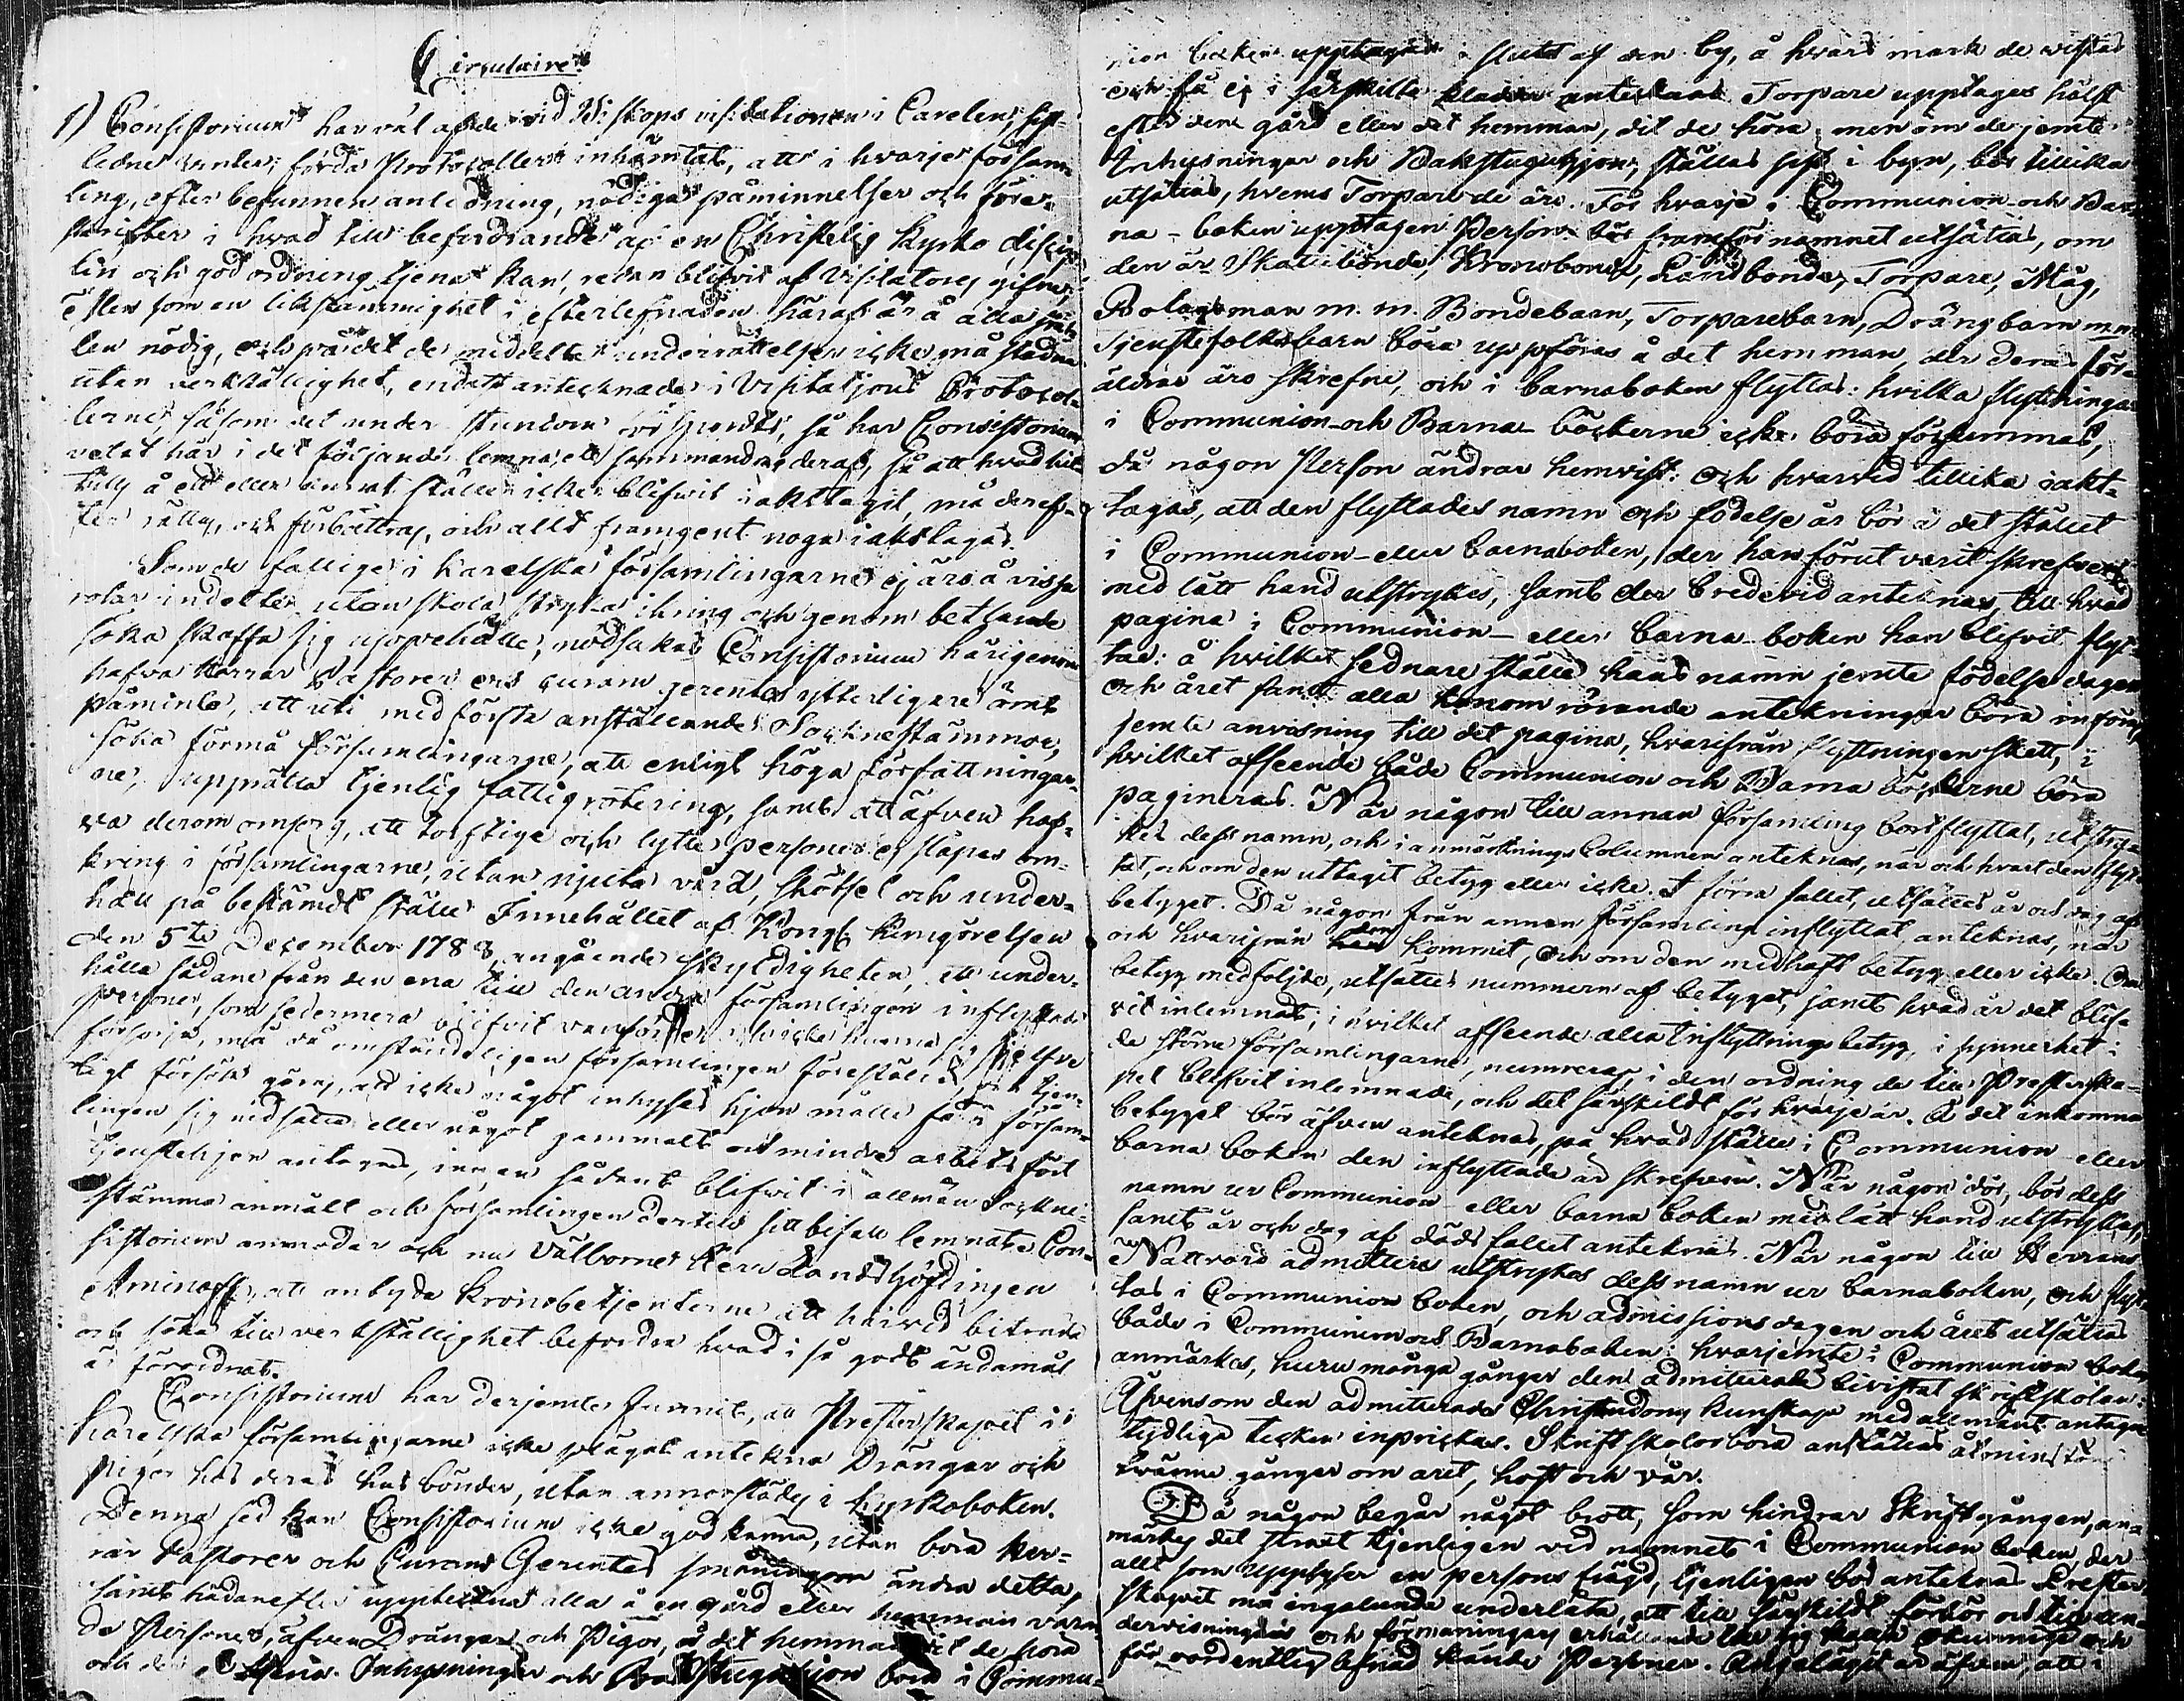 Circulaire
1) Consistorium har väl af de vid Biskops visitationen i Carelen, sist-
ledne vinter, förda Protocoller inhämtat, att i hvarje försam-
ling, efter befunnen anledning, nödiga påminnelser och före-
skrifter i hvad till befordrande af en Christelig kyrko discip-
lin och god ordning tjena kan, redan blifvit af Visitator gifne;
Men som en likstämmighet i efterlefnaden häraf är å alla stäl-
len nödig, och på det de meddelte underrättelser icke må stadna
utan verkställighet, endast antecknade i Visitations Protocol-
lerne, såsom det under stundom försports, så har Consistorium
velat här i det följande lemna ett sammandrag deraf, så att hvad hit-
tills å ett eller annat ställe icke blifvit iakttagit, må deref-
ter rättas, och förbättras, och allt framgent noga iakttagas.
Som de fattige i Karelska församlingarne ej äro å vissa
rotar indelte, utan skola stryka ikring och genom betlande
söka skaffa sig uppehälle; nödsakas Consistorium härigenom
hafva Herrar Pastorer och curam gerentes ytterligare ömt
påminte, att uti med första anställande Sockne stämmor,
söka förmå församlingarne, att enligt höga författningar-
ne, upprätta tjenlig fattigrotering, samt att äfven haf-
va derom omsorg, att torftige och lytte personer ej släpas om-
kring i församlingarne, utan njuta vård, skötsel och under-
håll på bestämdt ställe Innehållet af Kongl. Kungörelsen
den 5te December 1788, angående skyldigheten, att under-
hålla sådane från den ena till den andra församlingen inflyttade
personer, som sedermera blifvit vanföre och icke kunna sig sjelfve
försörja, må då omständeligen församlingen föreställas och tjen-
ligt försök göras, att icke något inhyses hjon måtte få i försam-
lingen sig nedsätta eller något gammalt och mindre arbetsfört
tjenstehjon antagas, innan sådant blifvit i allmän Sockne-
stämma anmält och församlingen dertill sitt bifall lemnat. Con-
sistorium anmodar och nu Välborne Herr Landshöfdingen
Aminoff, att anbyda kronobetjenterne att härvid biträda
och söka till verkställighet befordra hvad i så godt ändamål
är förordnat.
Consistorium har derjemte funnit, att Presterskapet i
Karelska församlingarne icke plägat antekna Drängar och
pigor hos deras husbönder, utan annorstädes i kyrkoboken.
Denna sed kan Consistorium icke godkänna, utan böra Her-
rar Pastorer och Curam Gerentes småningom ändra detta,
samt hädanefter uppteckna alla å en gård eller hemman varan-
de Personer, äfven Drängar och Pigor, å det hemman dit de höra
och der de tjena. Inhysningar och Backstuguhjon böra i Commu-
nion boken upptagas i slutet af den by, å hvars mark de vistas
och få ej i särskilta klasser antecknas. Torpare upptages hälst
efter den gård eller det hemman, dit de höra; men om de jemte
Inhysningar och Bakstuguhjon, ställas sist i byn, bör tillika
utsättas, hvems Torpare de äro. För hvarje i Communion- och Bar-
na-boken upptagen Person bör framför namnet utsättas, om
den är Skattebonde, Kronobonde, Landbonde, Torpare, Måg,
Bolagsman m. m. Bondebarn, Torparebarn, Drängbarn m.m.
Tjenstefolksbarn böra uppföras å det hemman, der deras för-
äldrar äro skrefne, och i barnaboken flyttas: hvilka flyttningar
i Communion- och Barna-böckerne icke böra försummas,
då någon Person ändrar hemvist: och hvarvid tillika iakt-
tages, att den flyttades namn och födelse år bör å det stället
i Communion- eller barnaboken, der han förut varit skrefven
med lätt hand utstrykes, samt der bredevid anteknas, till hvad
pagina i Communion- eller barna-boken han blifvit flyt-
tad: å hvilket sednare ställe hans namn jemte födelse dagen
och året samt alla honom rörande antekningar böra införas
jemte anvisning till det pagina, hvarifrån flyttningen skett, i
hvilket afseende både Communion och Barna böckerne böra
pagineras. När någon till annan församling bortflyttat, utstry-
kes dess namn, och i anmärknings Columnen anteknas, när och hvart den flyt-
tat, och om den uttagit betyg eller icke. I förra fallet, utsättes år och dag af
betyget. Då någon från annan församling inflyttat, anteknas, när
och hvarifrån den kommit, och om den medhaft betyg eller icke. Om
betyg medföljde, utsättes nummern af betyget, samt hvad år det blif-
vit inlemnat; i hvilket afseende alla Inflyttningsbetyg, i synnerhet i
de större församlingarne, numreras, i den ordning de till Presterska-
pet blifvit inlemnade, och det särskildt för hvarje år. Å det inkomna
betyget bör äfven anteknas, på hvad ställe i Communion eller
barna boken den inflyttade är skrefven. När någon dör, bör dess
namn ur Communion- eller barna boken med lätt hand utstrykas,
samt år och dag af dödsfallet anteknas. När någon till Herrans
Nattvard admitteras utstrykes dess namn ur barnaboken, och flyt-
tas i Communion boken, och admissions dagen och året utsättes
både i Communion och Barnaboken: hvarjemte i Communion boken
anmärkes, huru många gånger den admitterade bivistat skriftskolan.
Äfvensom den admitterades Christendoms kunskap med allmänt antagne
tydlige tecken inprickas. Skriftskolor böra anställas åtminstone
tvänne gånger om året, höst och vår.
Då någon begår något brott, som hindrar Skriftgången, an-
märkes det straxt tjenligen vid namnet i Communion boken, der
allt som upplyser en persons frägd, tjenligen bör anteknas. Prester-
skapet må ingalunda underlåta, att till särskildt förhör och till un-
dervisningars och förmaningars erhållande kalla okunnige och
för vördeslös lefnad kände Personer. Angeläget är äfven, att i